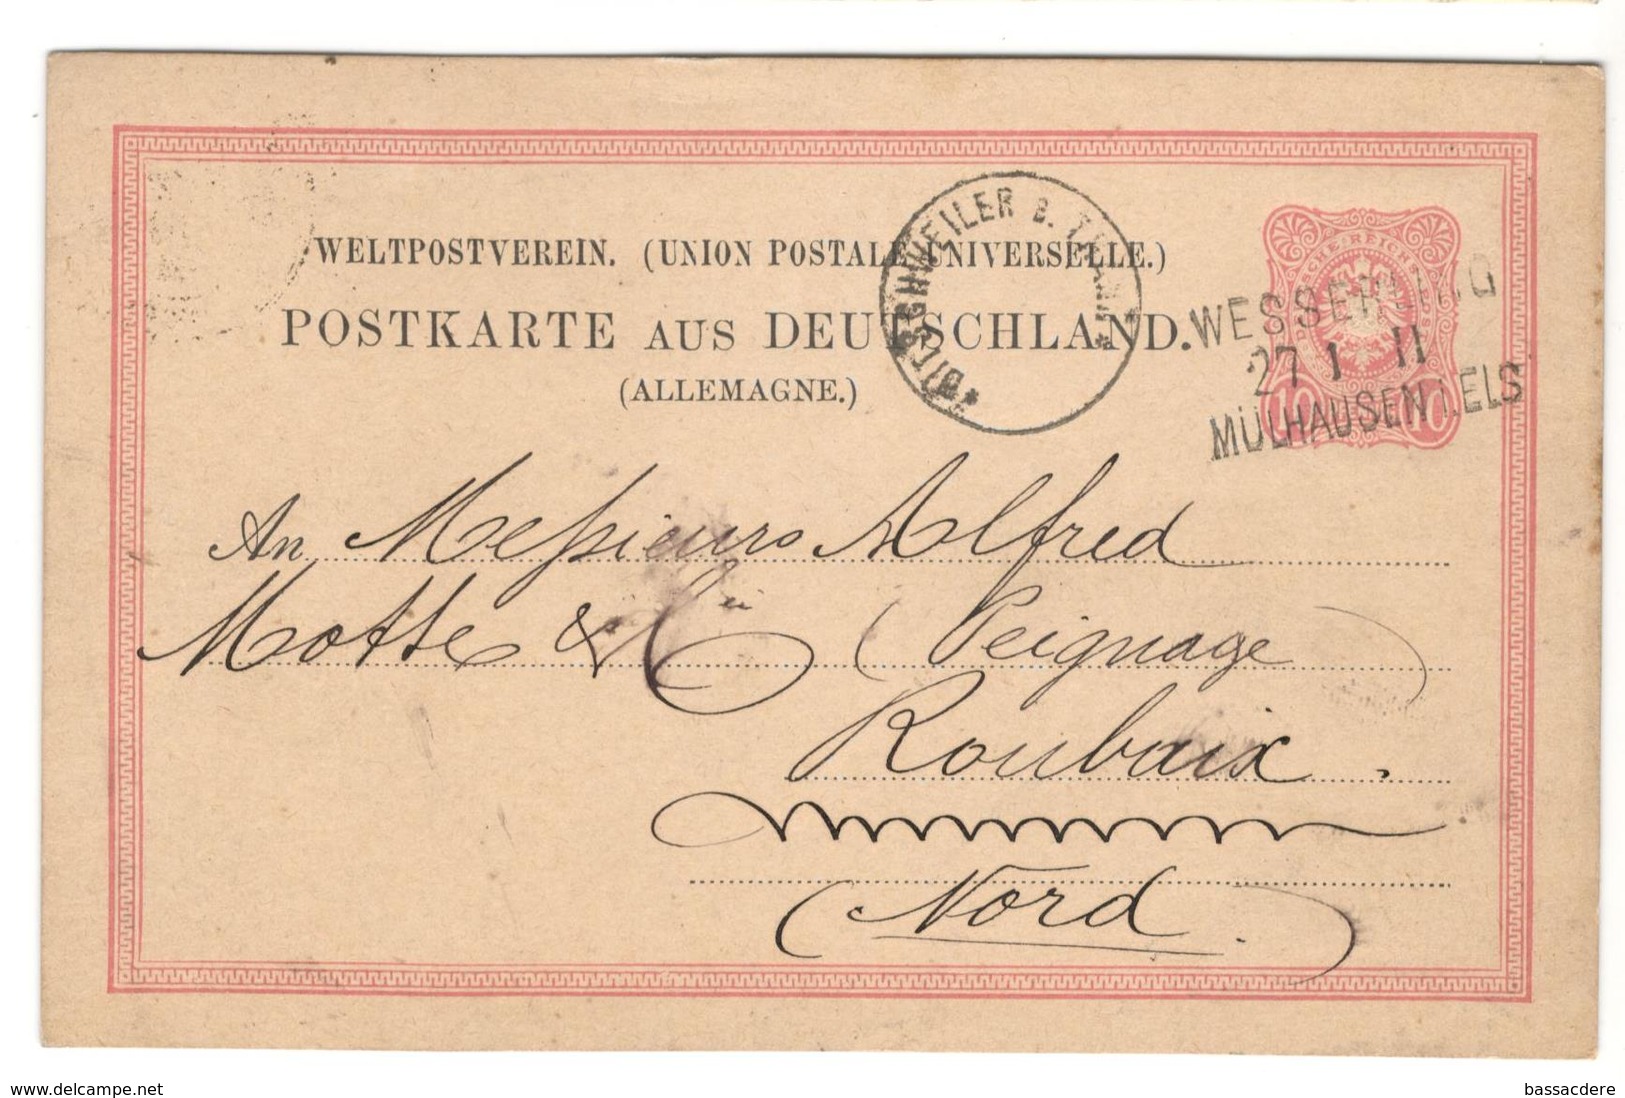 WELTPOSTVEREIN. (UNION POSTALE UNIVERSELLE.)
POSTKARTE AUS DEUTSCHLAND.
(ALLEMAGNE.)
*BITSCHWEILER B. THANN*
DEUTSCHE REICHSPOST
10 10
WESSERLING
27 1 11
MÜLHAUSEN I. ELS
An Messieurs Alfred
Motte & Cie (Peignage)
Roubaix.
(Nord.)
www.delcampe.net
bassacdere